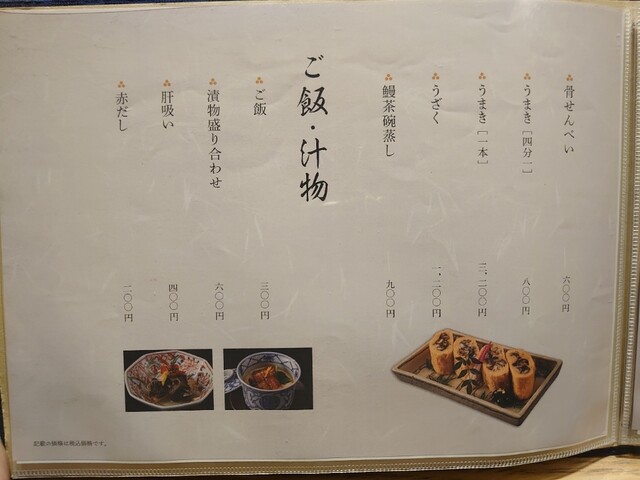 骨せんべい
六〇〇円
うまき[四分一]
八〇〇円
うまき[一本]
三、二〇〇円
うざく
一、二〇〇円
鰻茶碗蒸し
九〇〇円
ご飯・汁物
ご飯
三〇〇円
漬物盛り合わせ
六〇〇円
肝吸い
四〇〇円
赤だし
二〇〇円
記載の価格は税込価格です。